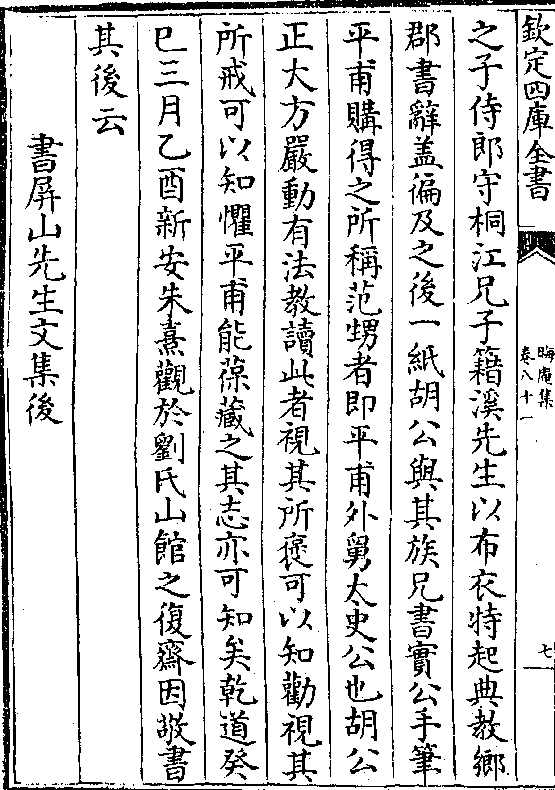 欽定四庫全書
晦庵集
卷八十一
七
之子侍郎守桐江兄子籍溪先生以布衣特起典教鄉
郡書辭盖徧及之後一紙胡公與其族兄書實公手筆
平甫購得之所稱范甥者即平甫外舅太史公也胡公
正大方嚴動有法教讀此者視其所褒可以知勸視其
所戒可以知懼平甫能葆藏之其志亦可知矣乾道癸
巳三月乙酉新安朱熹觀於劉氏山館之復齋因敬書
其後云
書屏山先生文集後